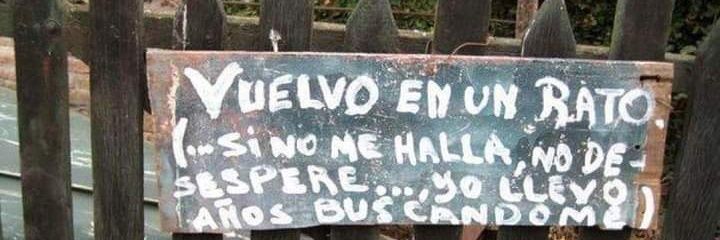 VUELVO EN UN RATO.
(...SI NO ME HALLA, NO DE-
SESPERE..., YO LLEVO
AÑOS BUSCANDOME)